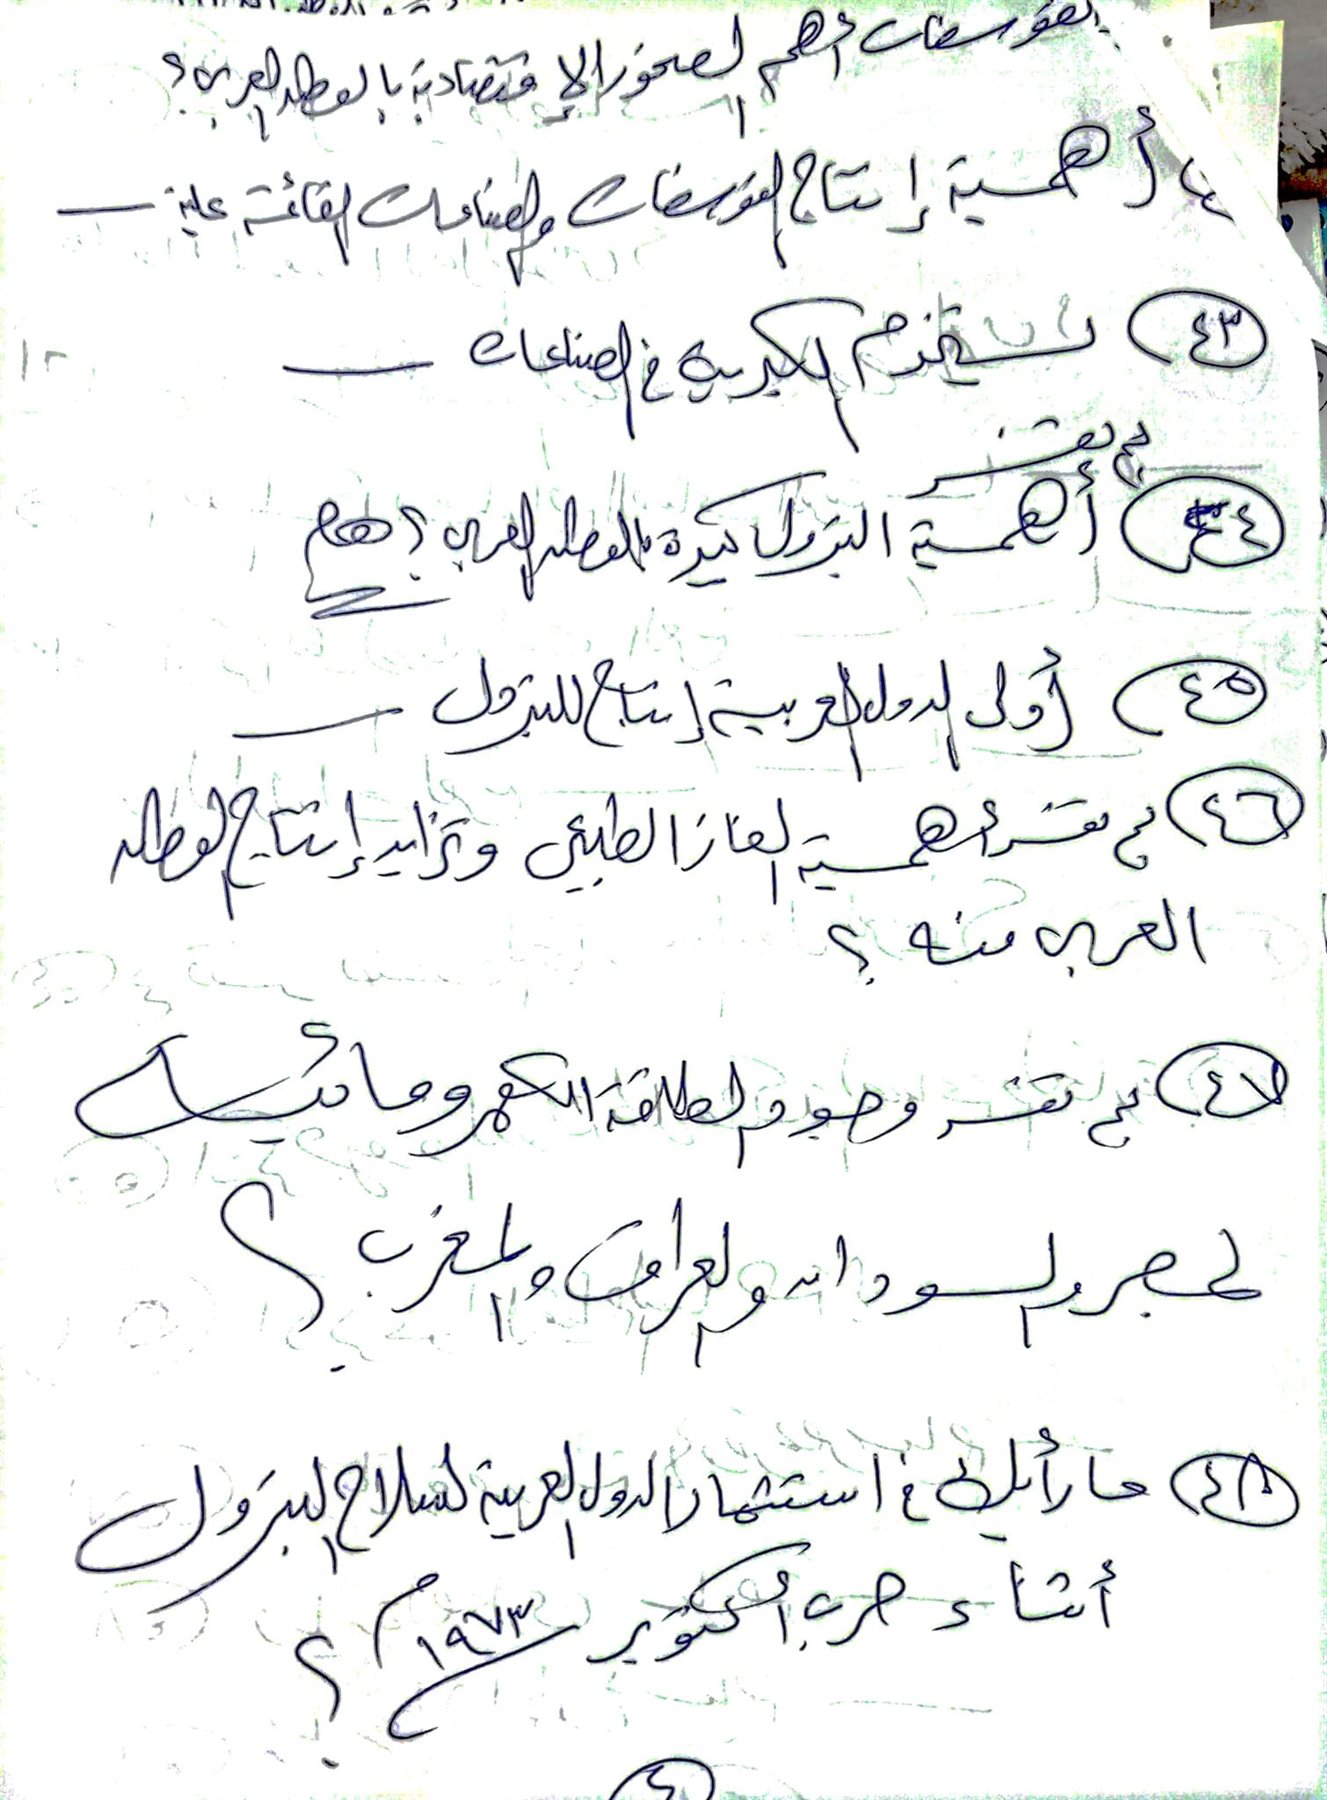 الفوسفات أهم الصخور الإقتصادية بالوطن العربى؟
أهمية إنتاج الفوسفات والصناعات القائمة عليه ــ
٤٣ يستخدم الكبريت فى الصناعات ــ
بم تفسر
٤٤ أهمية البترول كبيرة بالوطن العربى؟ هام
٤٥ أولى الدول العربية إنتاج للبترول ــ
٤٦ بم تفسر أهمية الغاز الطبيعى وتزايد إنتاج الوطن
العربى منه؟
٤٧ بم تفسر وجود الطاقة الكهرومائية
لمصر والسودان والعراق والمغرب؟
٤٨ ما رأيك فى استثمار الدول العربية لسلاح البترول
أثناء حرب أكتوبر ١٩٧٣م؟